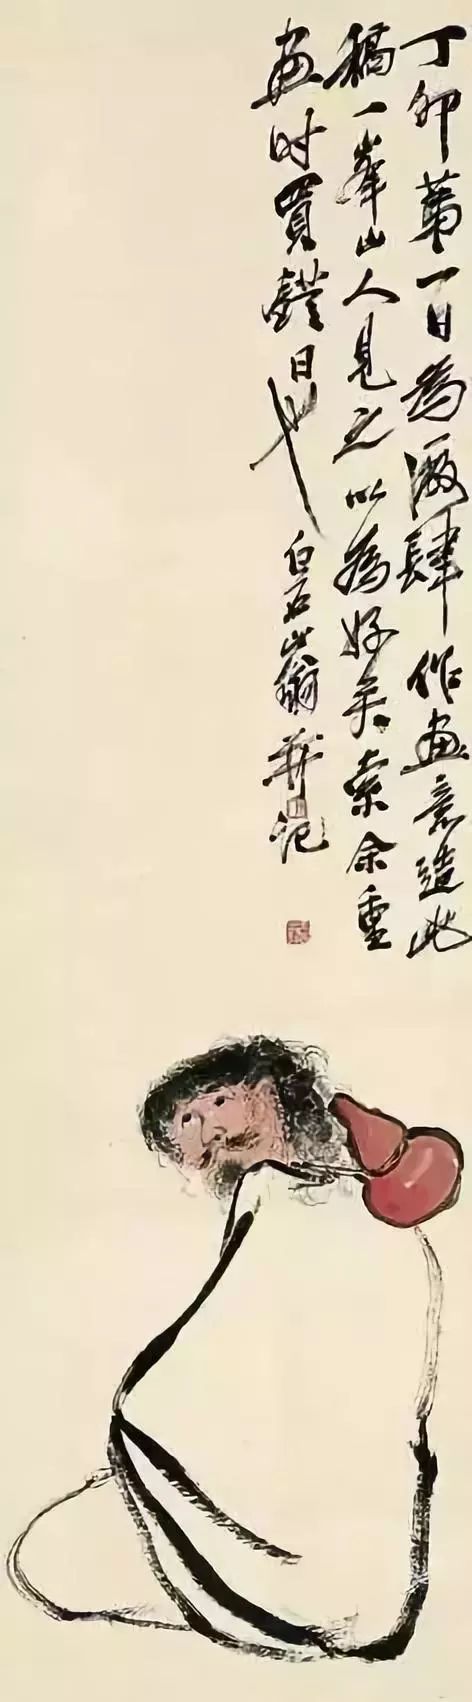 丁卯第一日為酒肆作畫意造此
稿一峯山人見之以為好矣索余重
畫时買鐙日也
白石山翁并記